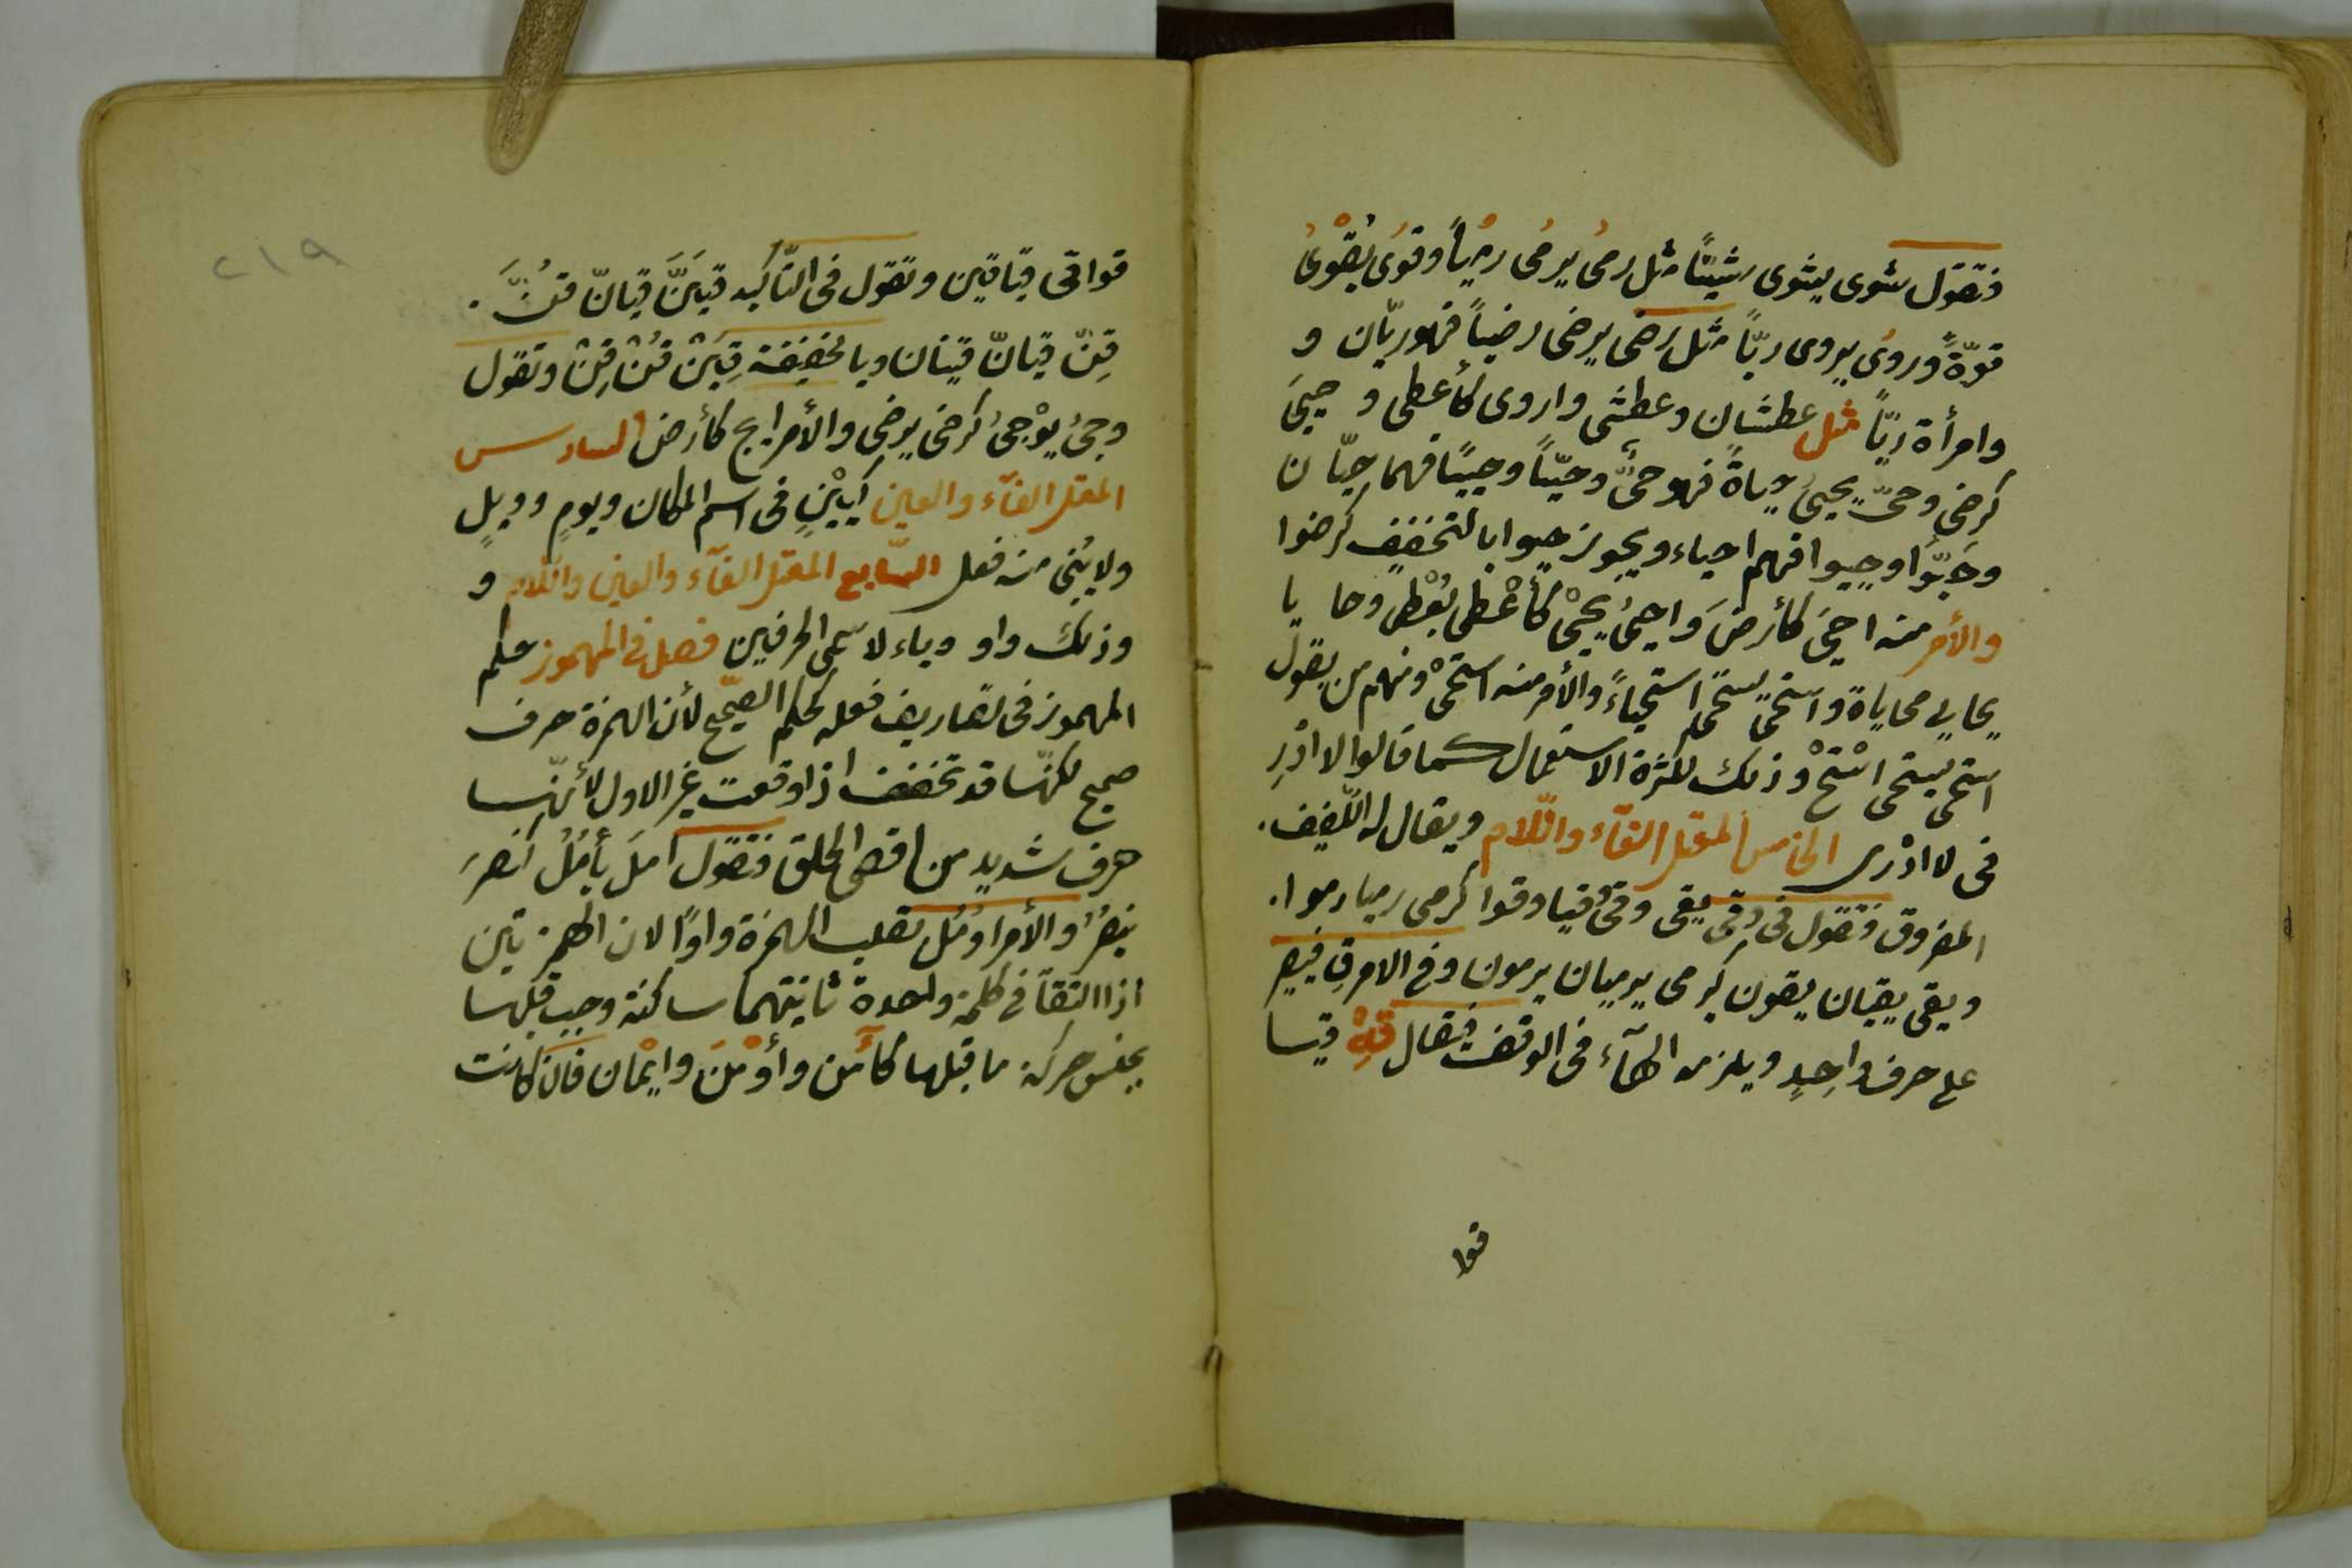 فتقول شوى يشوى شيّاً مثل رمى يرمى رمياً وقوى يقوى
قوّةً وروى يروى ريّاً مثل رضى يرضى رضياً فهو ريّان و
وامرأة ريّاً مثل عطشان وعطشى واروى كأعطى و حيىَ
كرضى وحىّ يحيىُ حياةً فهو حىٌّ وحيّاً وحييًا فهما حيّان
وحَيّوا وحييوا فهم احياء ويجوز حيوا بالتخفيف كرضوا
والأمر منه احىَ كأرضَ واحيىُ يحيىْ كأعْطى يُعْطى وحايا
يحايى محاياة واستحيى يستحيى استحياءً والأمر منه استحىْ ومنهم من يقول
استحى يستحى استْحْ وذلك لكثرة الاستعمال كما قالوا لا ادْرِ
فى لا ادْرى الخامس المعتل الفآء واللّام ويقال له اللّفيف.
المفروق فتقول فى وقى يقى وقىُ وقيا وقوا كرمى رميا رموا.
ويقى يقيان يقون كيرمى يرميان يرمون وفى الامر قِ فيصير
على حرف واحِدٍ ويلزمه الهآء فى الوقف فيقال قِهْ قيا
قوا
٢١٩
قوا قى قيا قين وتقول فى التّأكيد قيَنَّ قيانّ قُنَّ.
قِنّ قيانّ قينان وبالخفيفة قِيَنْ قُنْ قِنْ وتقول
وجىُ يوْجىُ كرضى يرضى والأمر ايج كأرض السادس
المعتل الفآء والعين كَيَيْنٍ فى اسم المكان ويومٍ وويلٍ
ولا يبنى منه فعل السّابع المعتل الفآء والعين واللّام و
وذلك واو وياء لاسمى الحرفين فصل فى المهموز حكم
المهموز فى تصاريف فعله كحكم الصّحيح لأنّ الهمزة حرف
صحيح لكنّها قد تخفف اذا وقعت غير الاول لأنّها
حرف شديد من اقصى الحلق فتقول امَلَ يأمُلُ كنصرَ
ينصرُ والأمر اومُل تقلب الهمزة واوًا لان الهمزتين
اذا التقتا فى كلمة واحدة ثانيتهما ساكنة وجب قلبها
بجنس حركة ما قبلها كآمن وأوْمنَ وايْمان فان كانت